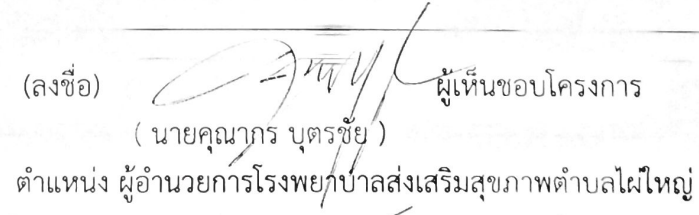 (ลงชื่อ) ผู้เห็นชอบโครงการ
( นายคุณากร บุตรชัย )
ตำแหน่ง ผู้อำนวยการโรงพยาบาลส่งเสริมสุขภาพตำบลไผ่ใหญ่